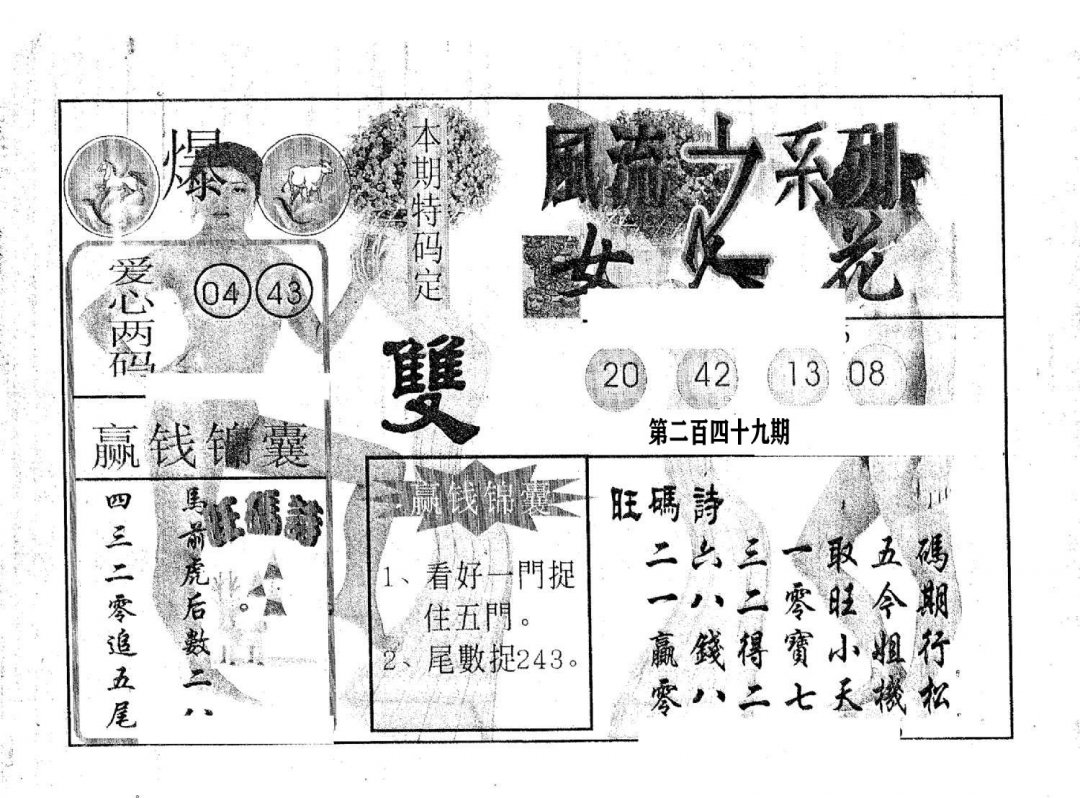 爆
本期特码定
雙
爱心两码
04 43
風流才系列
女人花
20 42 13 08
第二百四十九期
赢钱锦囊
旺碼詩
馬前虎后數二八
四三二零追五尾
赢钱锦囊
1、看好一門捉
住五門。
2、尾數捉243。
旺碼詩
二六三一取五碼
一八二零旺今期
贏錢得寶小姐行
零八二七天機松